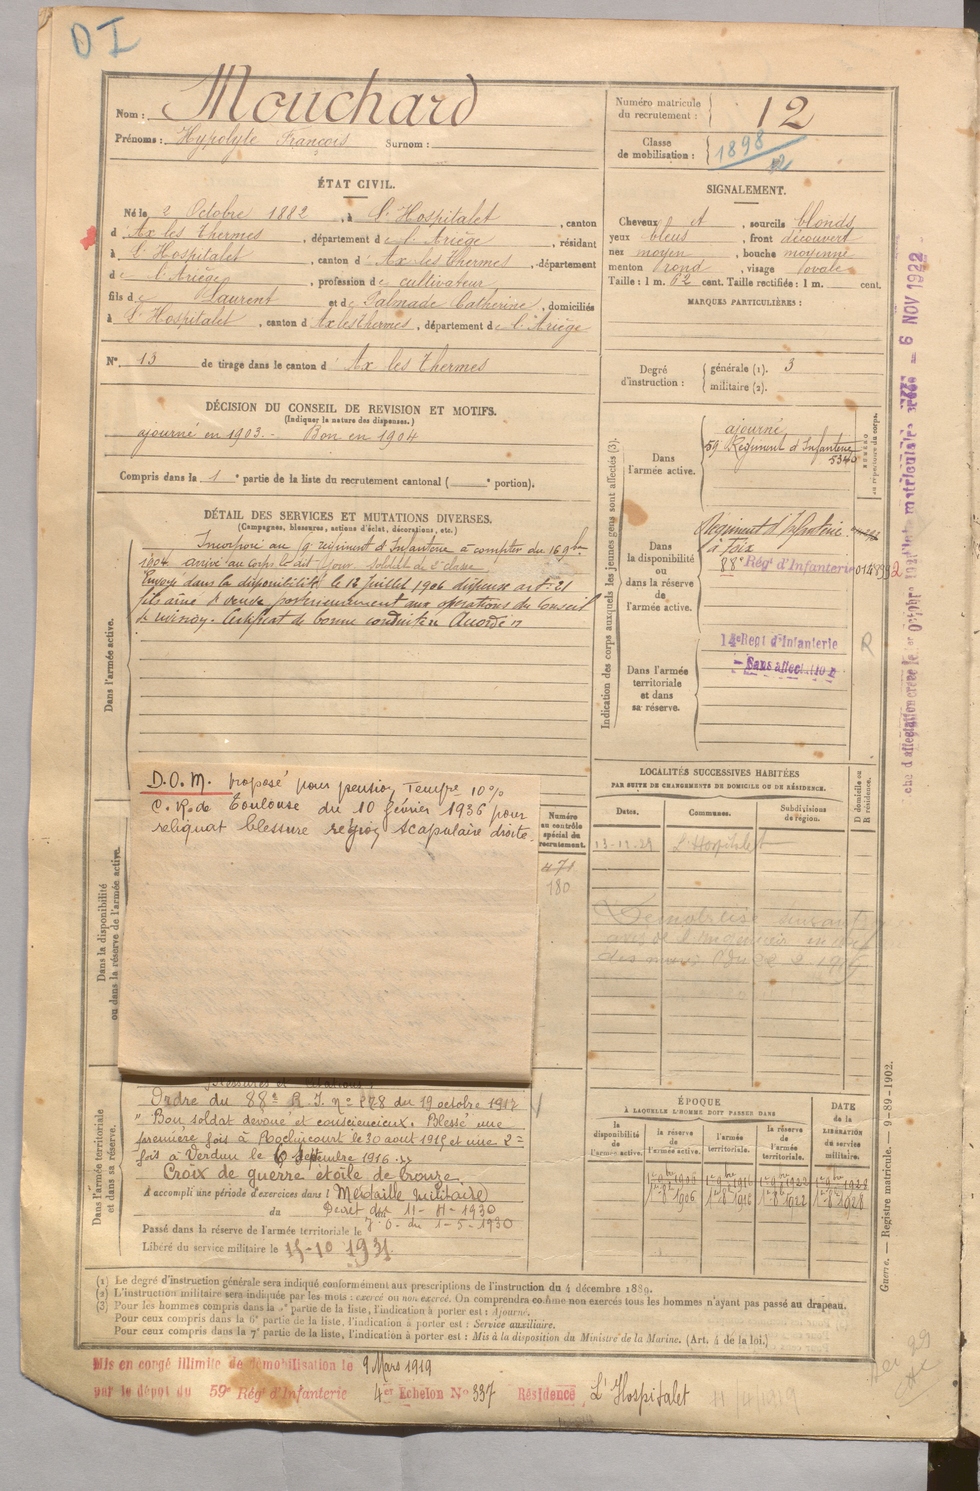 D I
Nom : Mouchard
Prénoms : Hypolyte François Surnom :
Numéro matricule du recrutement : 12
Classe de mobilisation : 1898
ÉTAT CIVIL.
Né le 2 Octobre 1882, à L'Hospitalet, canton
d'Ax les Thermes, département de l'Ariège, résidant
à L'Hospitalet, canton d'Ax les Thermes, département
de l'Ariège, profession de cultivateur
fils de Laurent et de Palmade Catherine, domiciliés
à L'Hospitalet, canton d'Ax les Thermes, département de l'Ariège
SIGNALEMENT.
Cheveux et, sourcils blonds
yeux bleus, front découvert
nez moyen, bouche moyenne
menton rond, visage ovale
Taille : 1 m. 62 cent. Taille rectifiée : 1 m. cent.
MARQUES PARTICULIÈRES :
N° 13 de tirage dans le canton d'Ax les Thermes
Degré d'instruction : générale (1). 3
militaire (2).
DÉCISION DU CONSEIL DE REVISION ET MOTIFS.
(Indiquer la nature des dispenses.)
ajourné en 1903. - Bon en 1904
Compris dans la 1e partie de la liste du recrutement cantonal ( e portion).
DÉTAIL DES SERVICES ET MUTATIONS DIVERSES.
(Campagnes, blessures, actions d'éclat, décorations, etc.)
Dans l'armée active.
Incorporé au régiment d'Infanterie à compter du 16 9bre
1904 arrivé au corps le dit jour soldat de 2e classe
Envoyé dans la disponibilité le 12 Juillet 1906 dispensé art. 21
fils aîné de veuve postérieurement aux opérations du Conseil
de révision. Certificat de bonne conduite Accordé
Indication des corps auxquels les jeunes gens sont affectés (3).
Dans l'armée active.
ajourné
59 Régiment d'Infanterie
5340
NUMÉRO au répertoire du corps.
Dans la disponibilité ou dans la réserve de l'armée active.
Régiment d'Infanterie
à Foix
88e Régt d'Infanterie
Dans l'armée territoriale et dans sa réserve.
14e Regt d'Infanterie
R
6 NOV 1922
Dans la disponibilité ou dans la réserve de l'armée active.
D.O.M. proposé pour pension Tempre 10 %
C. R. de Toulouse du 10 février 1936 pour
reliquat blessure région scapulaire droite.
Numéro au contrôle spécial du recrutement.
471
180
LOCALITÉS SUCCESSIVES HABITÉES
PAR SUITE DE CHANGEMENTS DE DOMICILE OU DE RÉSIDENCE.
Dates. Communes. Subdivisions de région. D domicile ou R résidence.
L'Hospitalet
Dans l'armée territoriale et dans sa réserve.
Ordre du 88e R.I. n° 278 du 19 octobre 1917
" Bon soldat dévoué et consciencieux. Blessé une
première fois à Roclincourt le 30 aout 1915 et une 2e
fois à Verdun le 6 septembre 1916. "
Croix de guerre étoile de bronze
A accompli une période d'exercices dans l Médaille militaire
du Décret du 11-4-1930
Passé dans la réserve de l'armée territoriale le J.O. du 1-5-1930
Libéré du service militaire le 15-10 1931.
ÉPOQUE
À LAQUELLE L'HOMME DOIT PASSER DANS
la disponibilité de l'armée active. la réserve de l'armée active. l'armée territoriale. la réserve de l'armée territoriale. DATE de la LIBÉRATION du service militaire.
(1) Le degré d'instruction générale sera indiqué conformément aux prescriptions de l'instruction du 4 décembre 1889.
(2) L'instruction militaire sera indiquée par les mots : exercé ou non exercé. On comprendra comme non exercés tous les hommes n'ayant pas passé au drapeau.
(3) Pour les hommes compris dans la 4e partie de la liste, l'indication à porter est : Ajourné.
Pour ceux compris dans la 6e partie de la liste, l'indication à porter est : Service auxiliaire.
Pour ceux compris dans la 7e partie de la liste, l'indication à porter est : Mis à la disposition du Ministre de la Marine. (Art. 4 de la loi.)
Guerre. — Registre matricule. — 9-89-1902.
Mis en congé illimité de démobilisation le 9 Mars 1919
par le dépôt du 59e Régt d'Infanterie 4er Echelon N° 337 Résidence L'Hospitalet